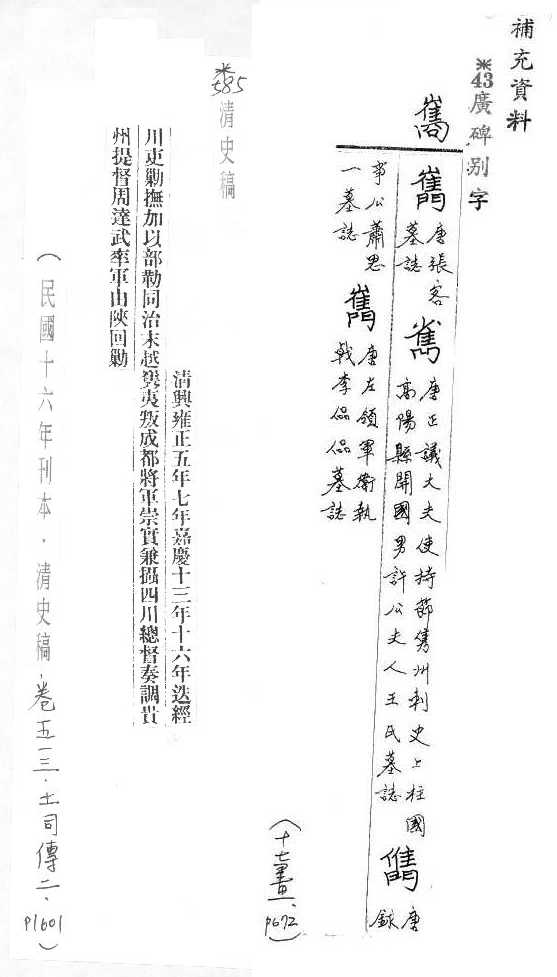 補充資料
※43廣碑别字
巂
唐張客
墓誌
唐正議大夫使持節雋州刺史上柱國
高陽縣開國男許公夫人王氏墓誌
唐
錄
事公蕭思
一墓誌
唐左領軍衛執
戟李品品墓誌
(十七畫·p672)
※585
清史稿
清興雍正五年七年嘉慶十三年十六年迭經
川吏勦撫加以部勒同治末越巂夷叛成都將軍崇實兼攝四川總督奏調貴
州提督周達武率軍由陝回勦
(民國十六年刊本·清史稿·卷五一三·土司傳二·p1601)